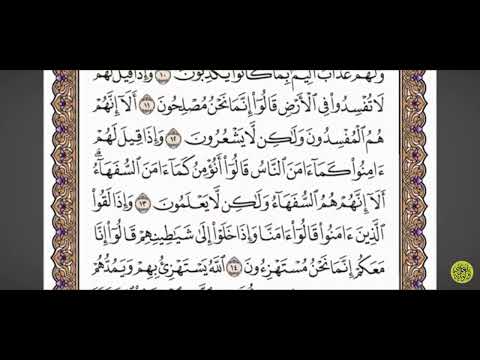 وَلَهُمْ عَذَابٌ أَلِيمٌۢ بِمَا كَانُوا۟ يَكْذِبُونَ ١٠ وَإِذَا قِيلَ لَهُمْ
لَا تُفْسِدُوا۟ فِى ٱلْأَرْضِ قَالُوٓا۟ إِنَّمَا نَحْنُ مُصْلِحُونَ ١١ أَلَآ إِنَّهُمْ
هُمُ ٱلْمُفْسِدُونَ وَلَٰكِن لَّا يَشْعُرُونَ ١٢ وَإِذَا قِيلَ لَهُمْ
ءَامِنُوا۟ كَمَآ ءَامَنَ ٱلنَّاسُ قَالُوٓا۟ أَنُؤْمِنُ كَمَآ ءَامَنَ ٱلسُّفَهَآءُ ۗ
أَلَآ إِنَّهُمْ هُمُ ٱلسُّفَهَآءُ وَلَٰكِن لَّا يَعْلَمُونَ ١٣ وَإِذَا لَقُوا۟
ٱلَّذِينَ ءَامَنُوا۟ قَالُوٓا۟ ءَامَنَّا وَإِذَا خَلَوْا۟ إِلَىٰ شَيَٰطِينِهِمْ قَالُوٓا۟ إِنَّا
مَعَكُمْ إِنَّمَا نَحْنُ مُسْتَهْزِءُونَ ١٤ ٱللَّهُ يَسْتَهْزِئُ بِهِمْ وَيَمُدُّهُمْ